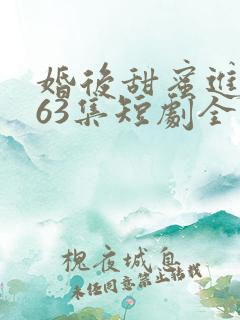 婚後甜蜜進
63集短劇全
槐夜城息
未任同意禁止转载